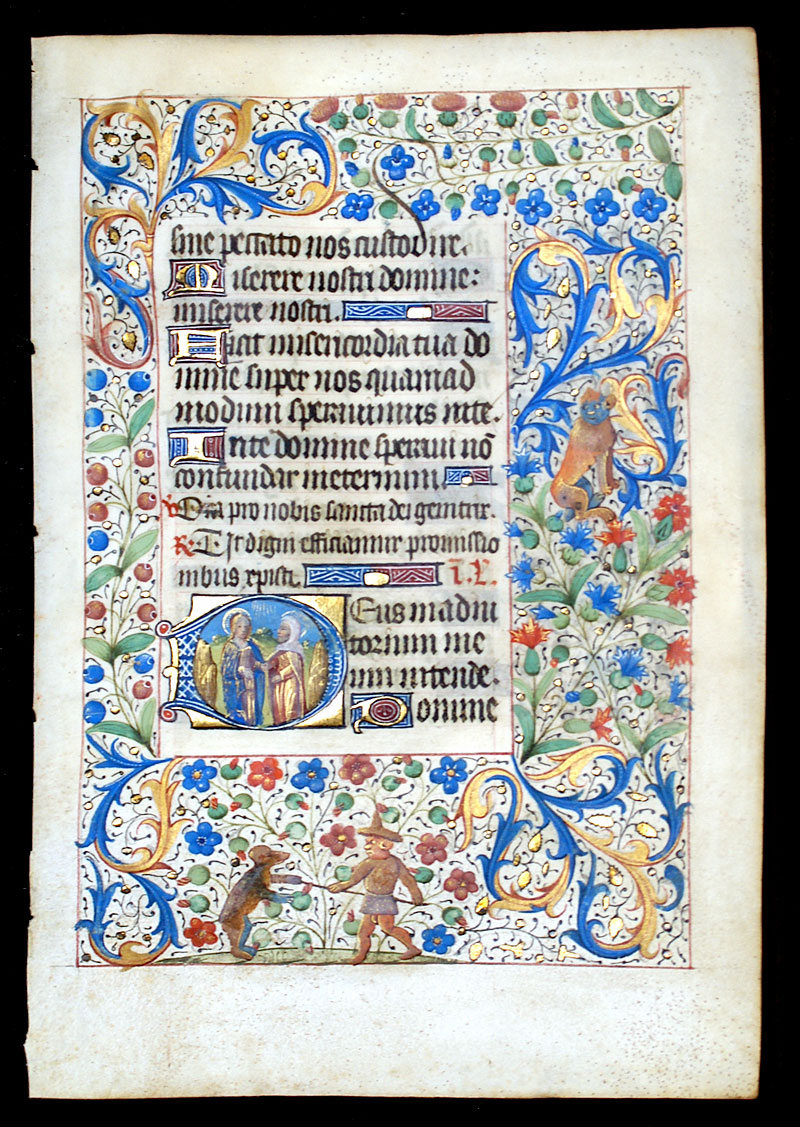 sine peccato nos custodire.
Miserere nostri domine:
miserere nostri.
Fiat misericordia tua do
mine super nos quamad
modum speravimus in te.
In te domine speravi nō
confundar in eternum.
V Ora pro nobis sancta dei genitrix.
R: Ut digni efficiamur promissio
nibus xpisti.
Deus in adiu
torium me
um intende.
Domine